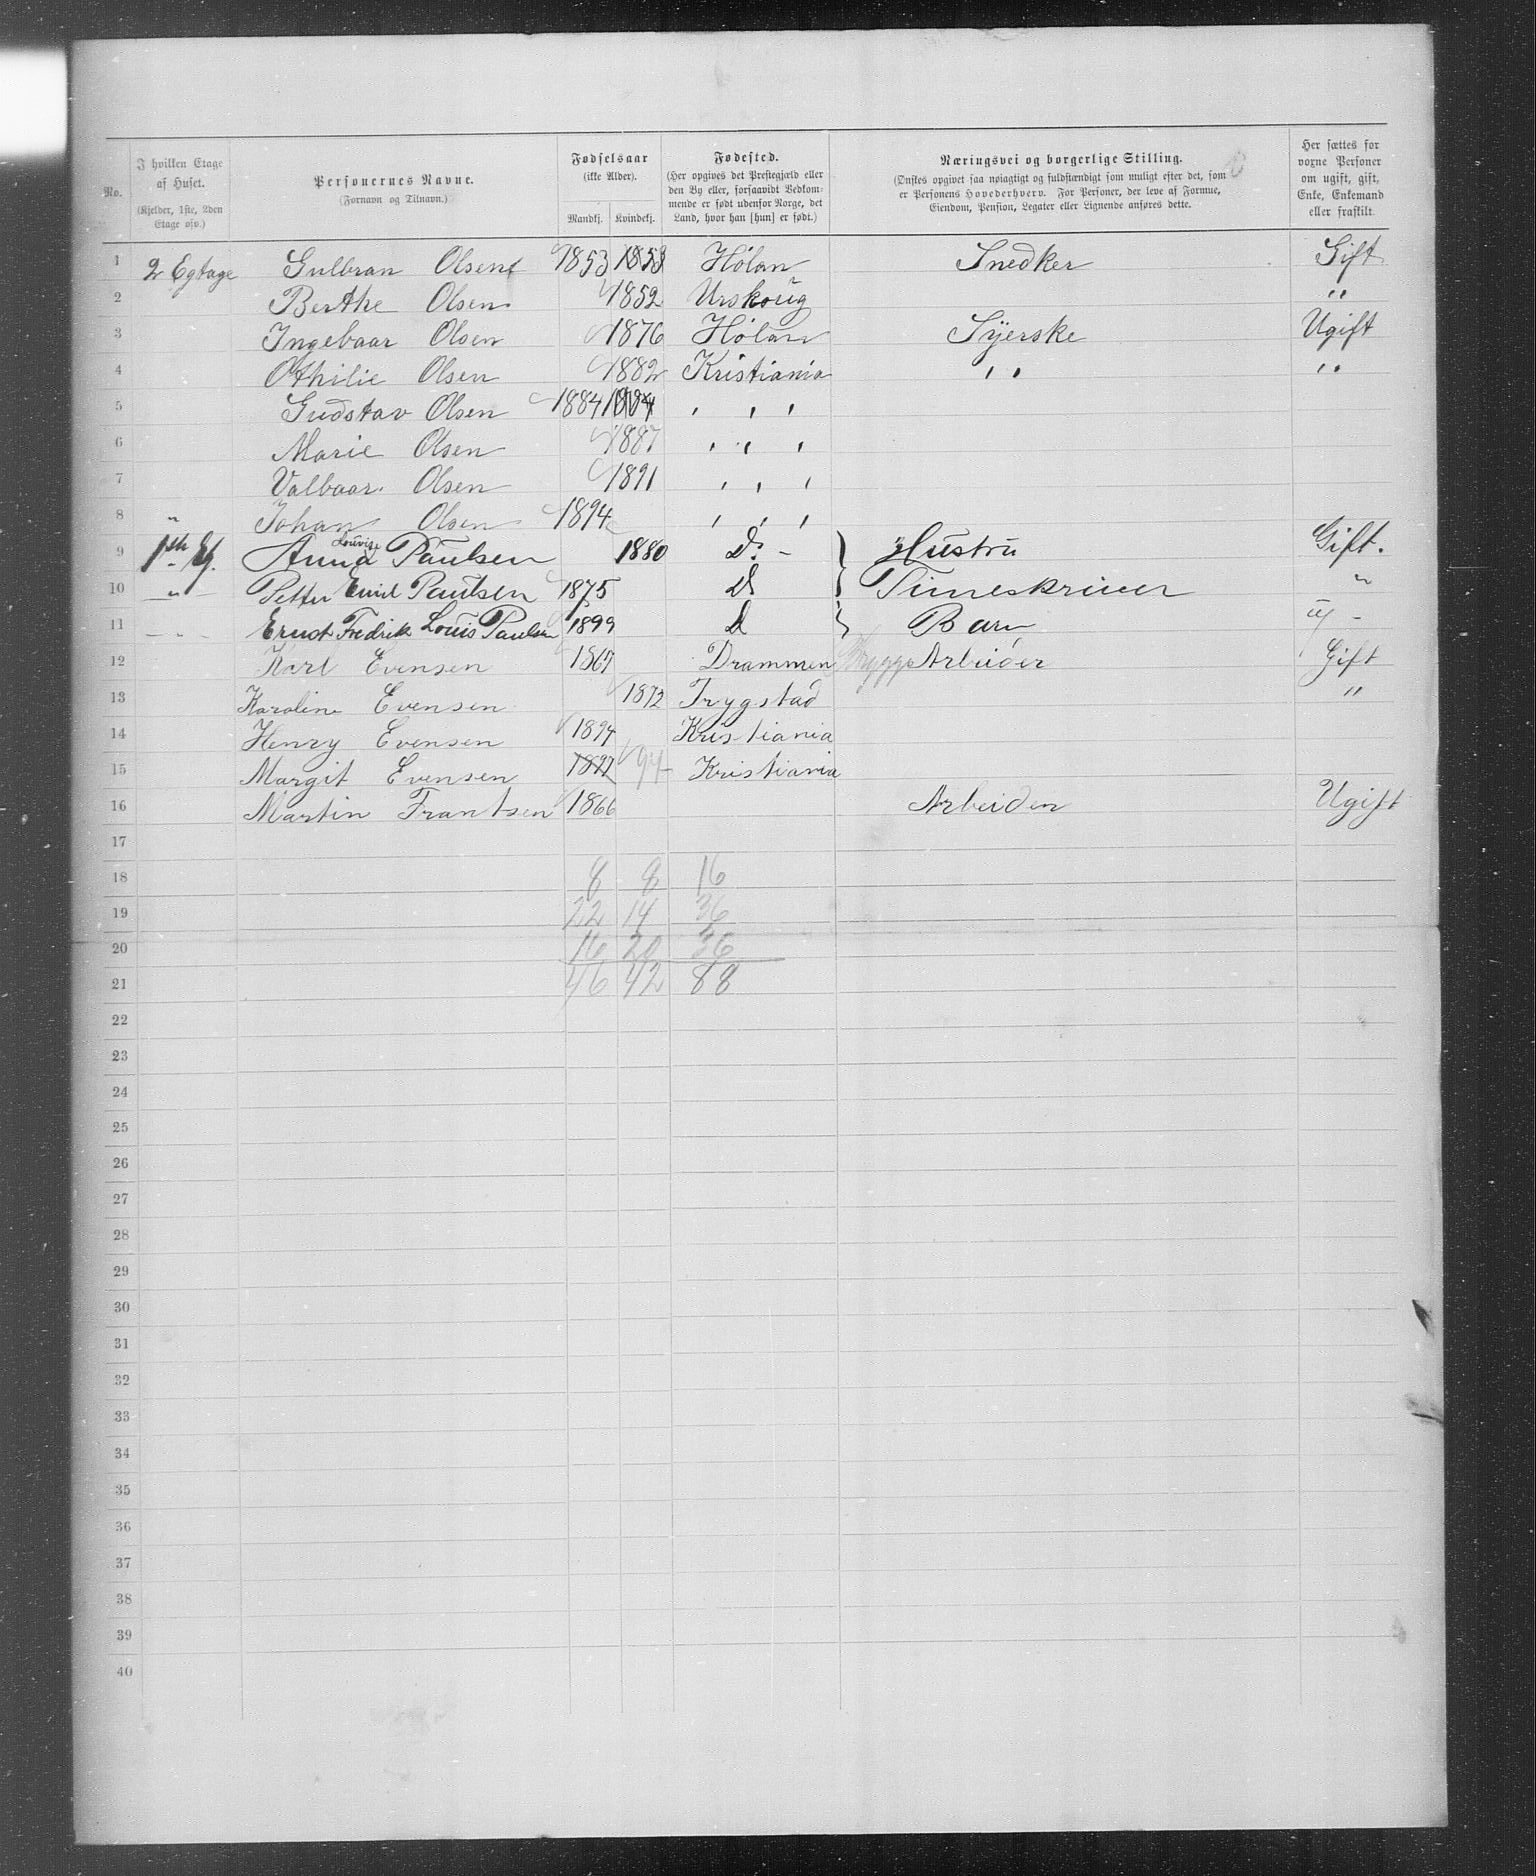 No.
I hvilken Etage af Huset. (Kjelder, 1ste, 2den Etage osv.)
Personernes Navne. (Fornavn og Tilnavn.)
Fødselsaar (ikke Alder). Mandkj. Kvindekj.
Fødested. (Her opgives det Prestegjæld eller den By eller, forsaavidt Vedkommende er født udenfor Norge, det Land, hvor han [hun] er født.)
Næringsvei og borgerlige Stilling. (Ønskes opgivet saa nøiagtigt og fuldstændigt som muligt efter det, som er Personens Hovederhverv. For Personer, der leve af Formue, Eiendom, Pension, Legater eller Lignende anføres dette.
Her sættes for voxne Personer om ugift, gift, Enke, Enkemand eller fraskilt.
1 2 Egtage Gulbran Olsen 1853 1853 Hólan Snedker Gift
2 Berthe Olsen 1852 Urskoug "
3 Ingebaar Olsen 1876 Hólan Syerske Ugift
4 Othilie Olsen 1882 Kristiania " "
5 Gudstav Olsen 1884 " " "
6 Marie Olsen 1887 " " "
7 Valbaar Olsen 1891 " " "
8 " Johan Olsen 1894 " " "
9 1ste Etg. Anna Louvise Paulsen 1880 Do - } Hustru Gift.
10 - " - Petter Emil Paulsen 1875 Do } Timeskriver "
11 - - - Ernst Fredrik Louis Paulsen 1899 Do } Barn ug -
12 Karl Evensen 1867 Drammen Brygge Arbeider Gift
13 Karoline Evensen 1872 Trygstad "
14 Henry Evensen 1894 Kristiania
15 Margit Evensen 1897 97 Kristiania
16 Martin Frantsen 1866 Arbeider Ugift
17
18 8 8 16
19 22 14 36
20 16 20 36
21 46 42 88
22
23
24
25
26
27
28
29
30
31
32
33
34
35
36
37
38
39
40